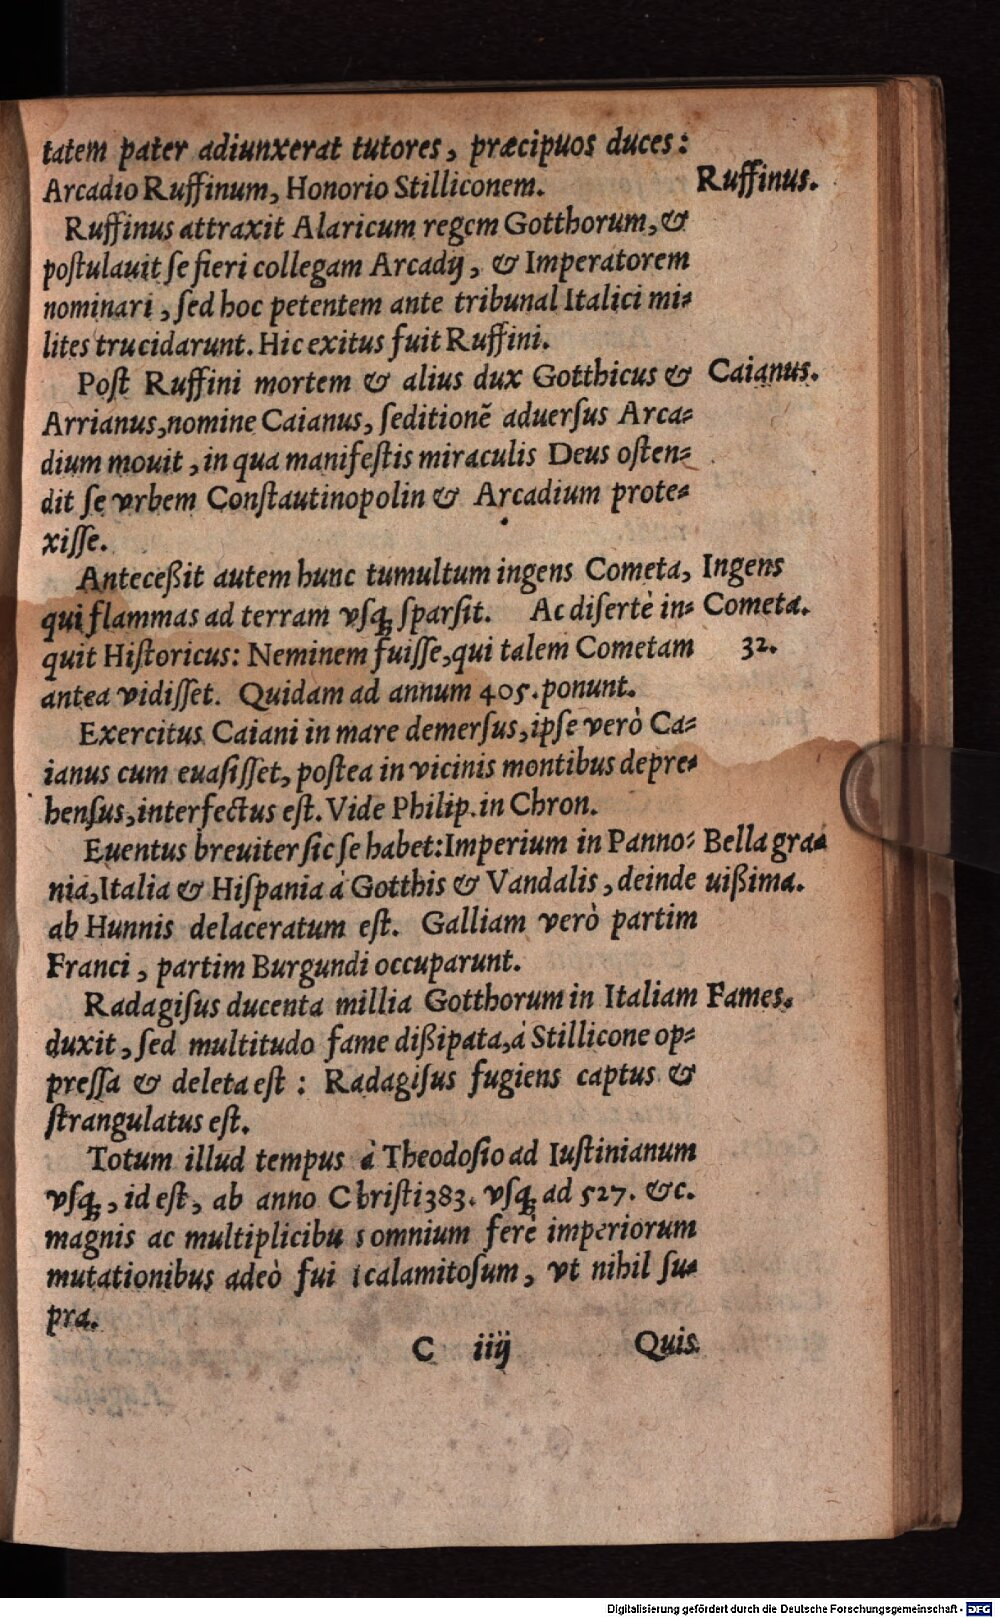 tatem pater adiunxerat tutores, præcipuos duces:
Arcadio Ruffinum, Honorio Stilliconem.
Ruffinus.
Ruffinus attraxit Alaricum regem Gotthorum, &
poſtulauit ſe fieri collegam Arcadij, & Imperatorem
nominari, ſed hoc petentem ante tribunal Italici mi-
lites trucidarunt. Hic exitus fuit Ruffini.
Poſt Ruffini mortem & alius dux Gotthicus &
Caianus.
Arrianus, nomine Caianus, ſeditionẽ aduerſus Arca-
dium mouit, in qua manifeſtis miraculis Deus oſten-
dit ſe vrbem Conſtautinopolin & Arcadium prote-
xiſſe.
Anteceßit autem hunc tumultum ingens Cometa,
Ingens
qui flammas ad terram vſq; ſparſit. Ac diſertè in-
Cometa.
quit Hiſtoricus: Neminem fuiſſe, qui talem Cometam
32.
antea vidiſſet. Quidam ad annum 405. ponunt.
Exercitus Caiani in mare demerſus, ipſe verò Ca-
ianus cum euaſiſſet, poſtea in vicinis montibus depre-
henſus, interfectus eſt. Vide Philip. in Chron.
Euentus breuiter ſic ſe habet: Imperium in Panno-
Bella gra-
nia, Italia & Hiſpania à Gotthis & Vandalis, deinde
uißima.
ab Hunnis delaceratum eſt. Galliam verò partim
Franci, partim Burgundi occuparunt.
Radagiſus ducenta millia Gotthorum in Italiam
Fames.
duxit, ſed multitudo fame dißipata, à Stillicone op-
preſſa & deleta eſt: Radagiſus fugiens captus &
ſtrangulatus eſt.
Totum illud tempus à Theodoſio ad Iuſtinianum
vſq;, id eſt, ab anno Chriſti 383. vſq; ad 527. &c.
magnis ac multiplicibu s omnium ferè imperiorum
mutationibus adeò fui t calamitoſum, vt nihil ſu-
pra.
C iiij Quis
Digitalisierung gefördert durch die Deutsche Forschungsgemeinschaft - DFG